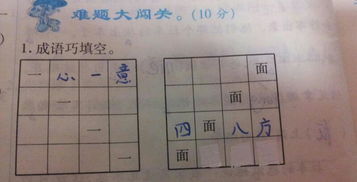 难题大闯关。(10分)
1.成语巧填空。
一心一意 面
一 面
一 四面八方
一 面